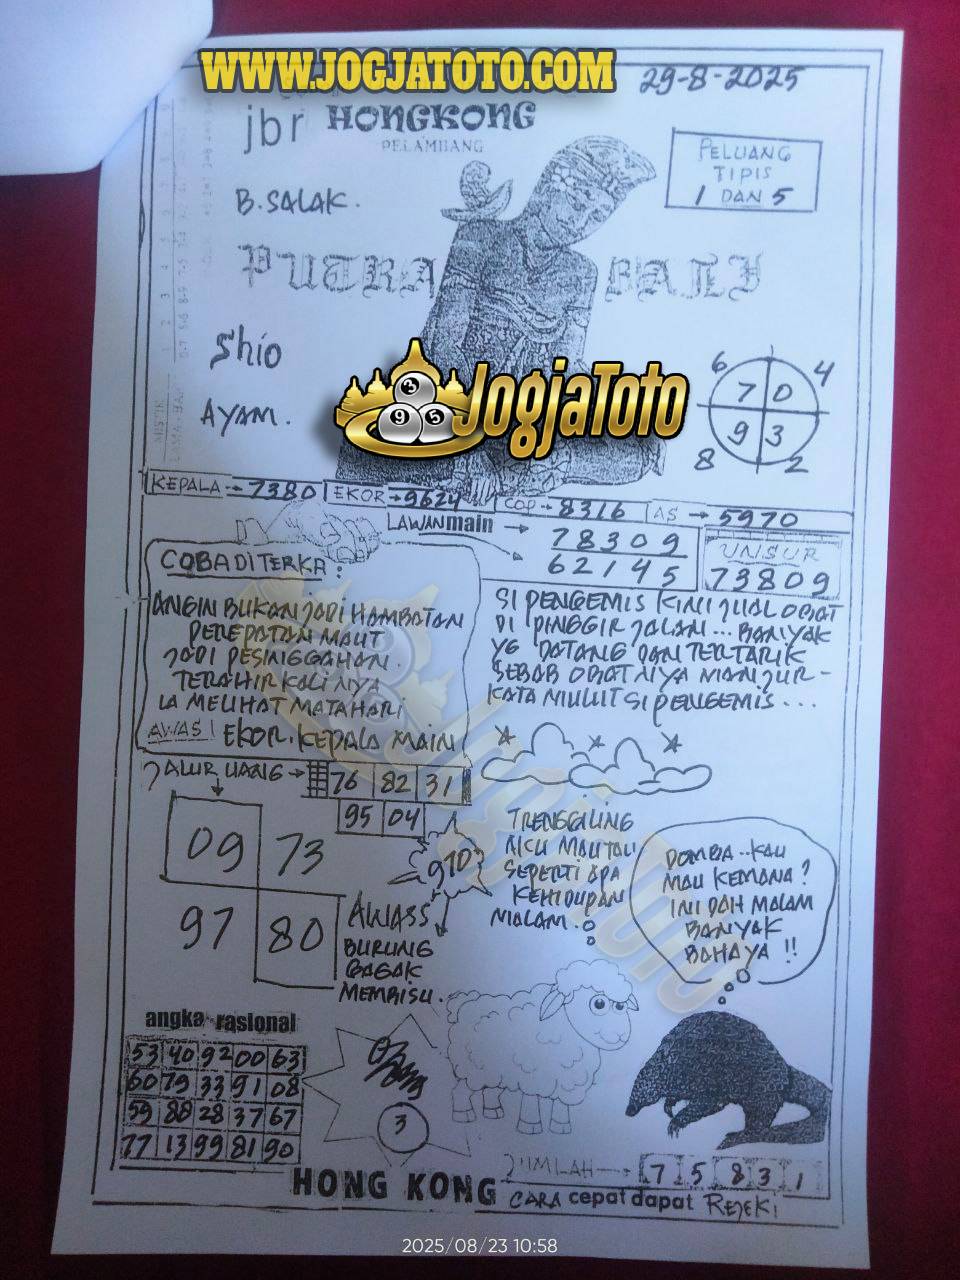 WWW.JOGJATOTO.COM
29-8-2025
jbr HONGKONG
PELAMBANG
PELUANG
TIPIS
1 DAN 5
B.SALAK.
PUTRA BALI
Shio
AYAM.
JogjaToto
3
9 5
6 4
7 0
9 3
8 2
KEPALA → 7380 EKOR → 9624 COP → 8316 AS → 5970
LAWAN main →
78309
62145
UNSUR
73809
COBA DITERKA :
ANGIN BUKAN JADI HAMBATAN
PEREPATAN MAUT
JADI PESINGGAHAN.
TERAHIR KALI NYA
IA MELIHAT MATAHARI
AWAS! EKOR. KEPALA MAIN
SI PENGEMIS KINI JUAL OBAT
DI PINGGIR JALAN... BANYAK
YG DATANG DAN TERTARIK
SEBAB OBAT NYA MANJUR -
KATA MULUT SI PENGEMIS...
JALUR UANG → 76 82 31
95 04
09 73
97 80
910
AWASS
BURUNG
GAGAK
MEMBISU.
TRENGGILING
AKU MAU TAU
SEPERTI APA
KEHIDUPAN
MALAM.
DOMBA..KAU
MAU KEMANA?
INI DAH MALAM
BANYAK
BAHAYA !!
angka rasional
53 40 92 00 63
60 79 33 91 08
59 88 28 37 67
77 13 99 81 90
3
JUMLAH → 7 5 8 3 1
HONG KONG CARA cepat dapat REJEKI
2025/08/23 10:58